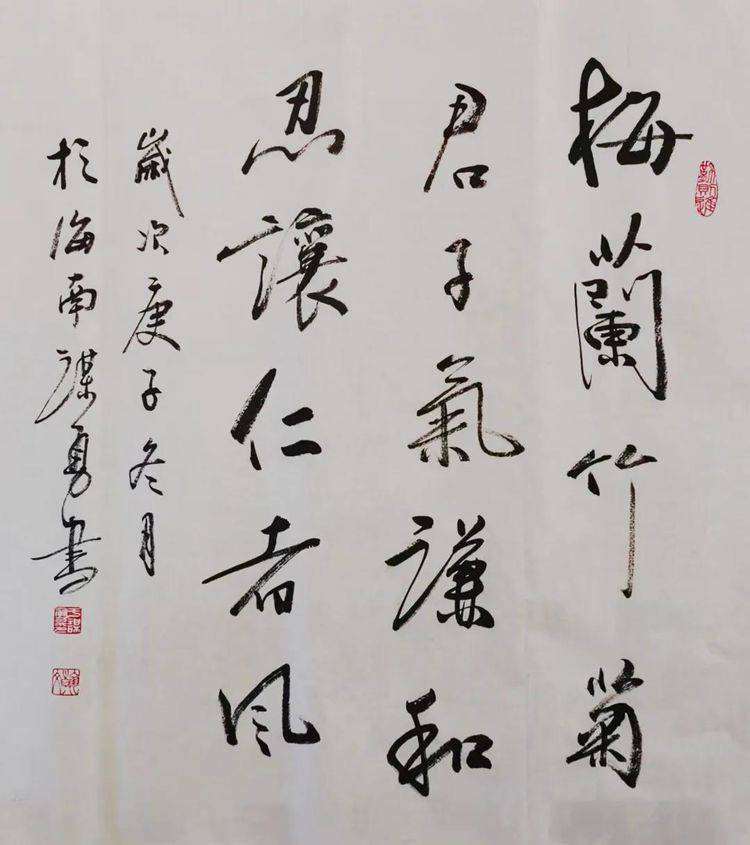 梅蘭竹菊
君子氣謙和
忍讓仁者風
歲次庚子冬月
於海南謀勇書